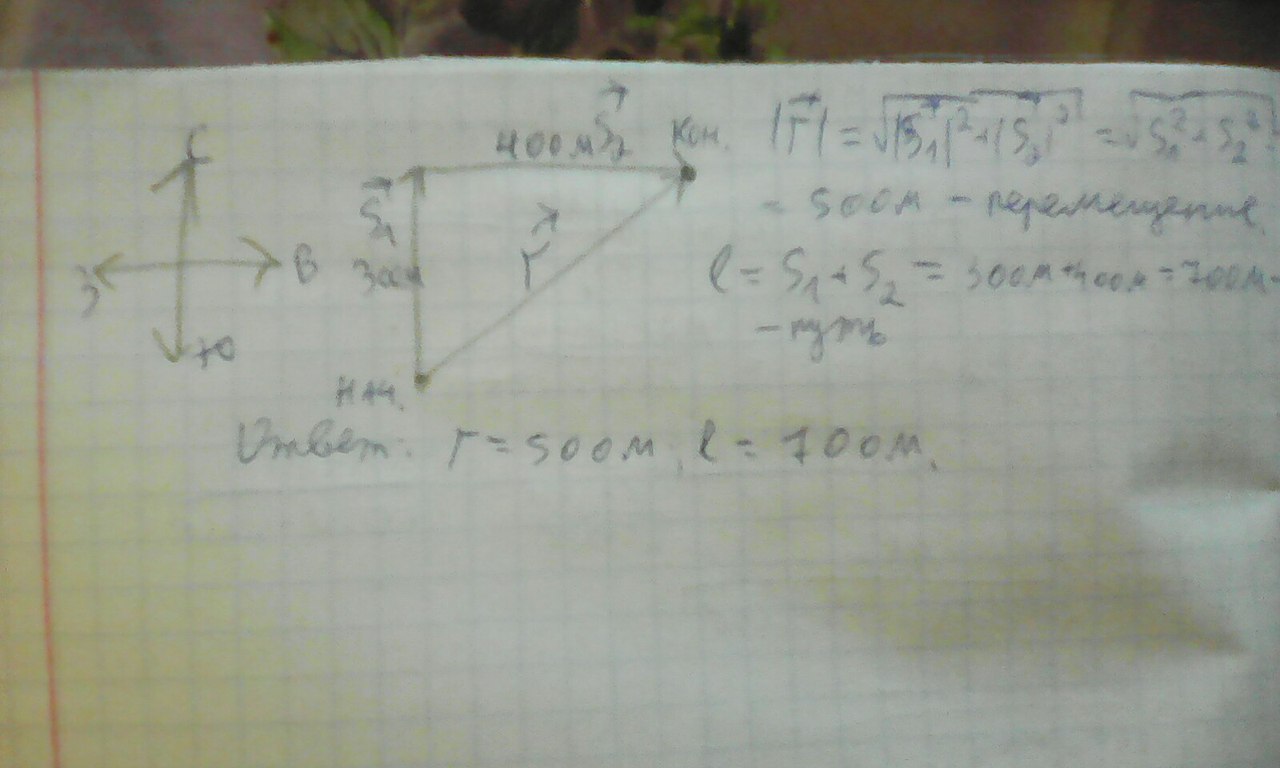 С
З В
Ю
400м S⃗₂ кон.
S⃗₁
300м
r⃗
нач.
|r⃗| = √|S⃗₁|² + |S⃗₂|² = √S₁² + S₂² =
= 500м - перемещение
l = S₁ + S₂ = 300м + 400м = 700м -
- путь
Ответ: r = 500м, l = 700м.